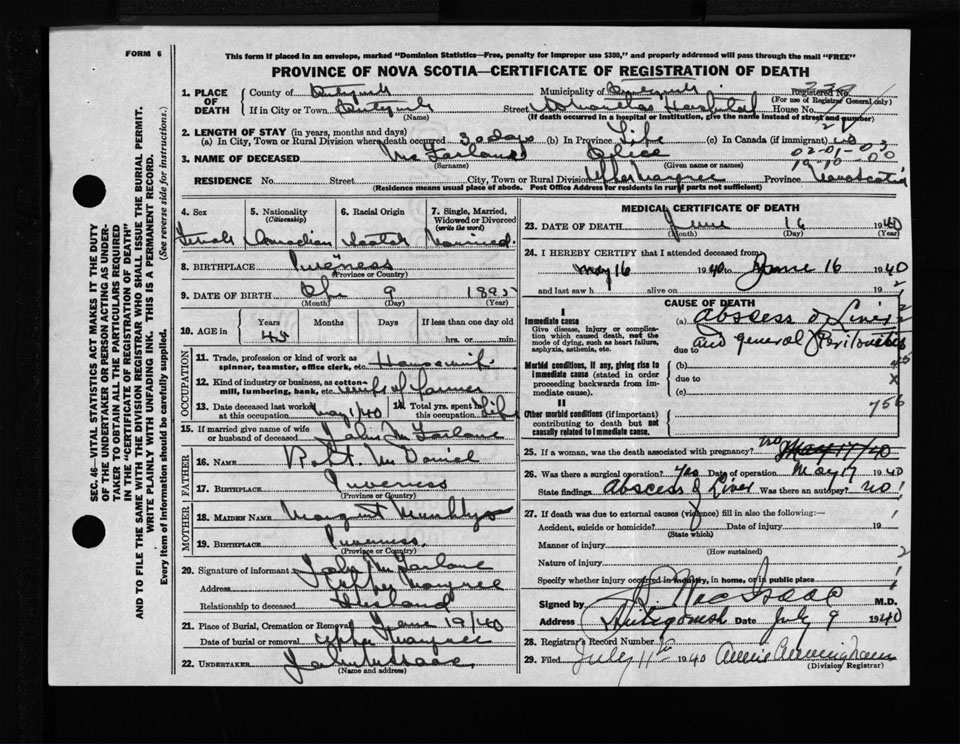 FORM 6
This form if placed in an envelope, marked "Dominion Statistics—Free, penalty for improper use $300," and properly addressed will pass through the mail "FREE"
PROVINCE OF NOVA SCOTIA—CERTIFICATE OF REGISTRATION OF DEATH
SEC. 46—VITAL STATISTICS ACT MAKES IT THE DUTY
OF THE UNDERTAKER OR PERSON ACTING AS UNDER-
TAKER TO OBTAIN ALL THE PARTICULARS REQUIRED
IN THE "CERTIFICATE OF REGISTRATION OF DEATH"
AND TO FILE THE SAME WITH THE DIVISION REGISTRAR WHO SHALL ISSUE THE BURIAL PERMIT.
WRITE PLAINLY WITH UNFADING INK. THIS IS A PERMANENT RECORD.
Every item of information should be carefully supplied. (See reverse side for instructions.)
1. PLACE OF DEATH
County of Antigonish Municipality of Antigonish Registered No.
(For use of Registrar General only)
If in City or Town Antigonish Street St Marthas Hospital House No.
(Name) (If death occurred in a hospital or institution, give the name instead of street and number)
2. LENGTH OF STAY (in years, months and days)
(a) In City, Town or Rural Division where death occurred 30 days (b) In Province Life (c) In Canada (if immigrant)
02-01-03
3. NAME OF DECEASED McFarlane Alice
(Surname) (Given name or names)
19-10-00
RESIDENCE No. Street City, Town or Rural Division Upper Margree Province Nova Scotia
(Residence means usual place of abode. Post Office Address for residents in rural parts not sufficient)
4. Sex Female
5. Nationality (Citizenship) Canadian
6. Racial Origin Scotch
7. Single, Married, Widowed or Divorced (write the word) Married
8. BIRTHPLACE Inverness
(Province or Country)
9. DATE OF BIRTH 9 1895
(Month) (Day) (Year)
10. AGE in Years Months Days If less than one day old
45 hrs. or min.
OCCUPATION
11. Trade, profession or kind of work as
spinner, teamster, office clerk, etc. Housewife
12. Kind of industry or business, as cotton-
mill, lumbering, bank, etc. wife of farmer
13. Date deceased last worked at this occupation May 1/40 14. Total yrs. spent in this occupation Life
15. If married give name of wife
or husband of deceased John McFarlane
FATHER
16. NAME Robt. McDaniel
17. BIRTHPLACE Inverness
(Province or Country)
MOTHER
18. MAIDEN NAME Margaret
19. BIRTHPLACE Inverness.
(Province or Country)
20. Signature of informant John McFarlane
Address Upper Margree
Relationship to deceased Husband
21. Place of Burial, Cremation or Removal June 19/40
Date of burial or removal Upper Margree
22. UNDERTAKER John McIsaac
(Name and address)
MEDICAL CERTIFICATE OF DEATH
23. DATE OF DEATH June 16 1940
(Month) (Day) (Year)
24. I HEREBY CERTIFY that I attended deceased from
May 16 1940 to June 16 1940
and last saw h alive on 19
CAUSE OF DEATH
I
Immediate cause
Give disease, injury or complica-
tion which caused death, not the
mode of dying, such as heart failure,
asphyxia, asthenia, etc.
(a) Abscess of Liver
due to and general Peritonitis
Morbid conditions, if any, giving rise to
Immediate cause (stated in order
proceeding backwards from im-
mediate cause).
(b)
due to
(c)
II
Other morbid conditions (if important)
contributing to death but not
causally related to Immediate cause.
756
25. If a woman, was the death associated with pregnancy? no May 17/40
26. Was there a surgical operation? yes Date of operation May 17 1940
State findings Abscess of Liver Was there an autopsy? no
27. If death was due to external causes (violence) fill in also the following:—
Accident, suicide or homicide? Date of injury 19
(State which)
Manner of injury
(How sustained)
Nature of injury
Specify whether injury occurred in industry, in home, or in public place
Signed by MacIsaac M.D.
Address Antigonish Date July 9 1940
28. Registrar's Record Number
29. Filed July 11th 1940 Annie Cunningham
(Division Registrar)